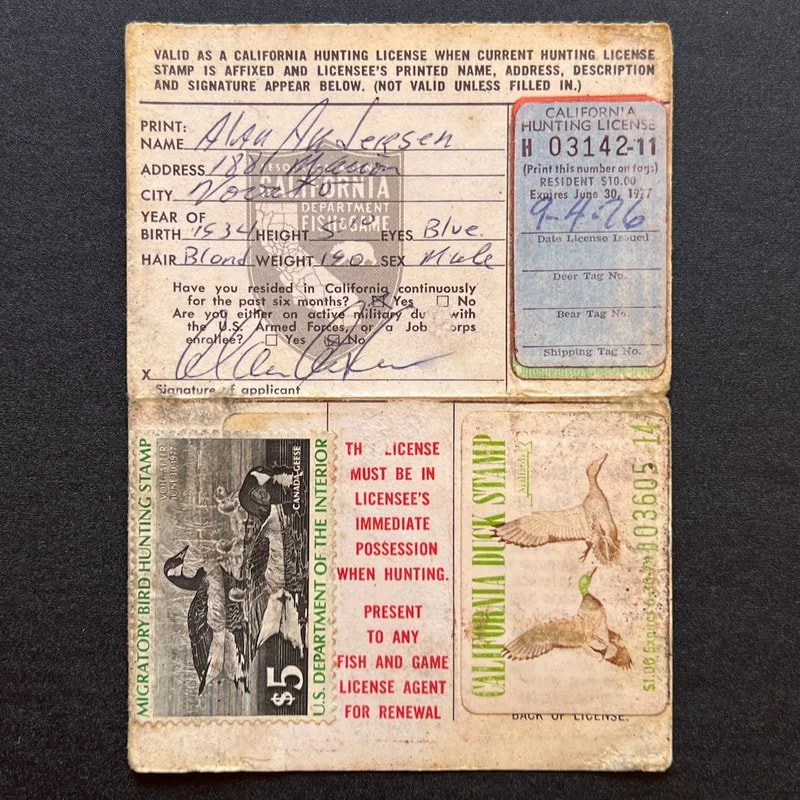 VALID AS A CALIFORNIA HUNTING LICENSE WHEN CURRENT HUNTING LICENSE
STAMP IS AFFIXED AND LICENSEE'S PRINTED NAME, ADDRESS, DESCRIPTION
AND SIGNATURE APPEAR BELOW. (NOT VALID UNLESS FILLED IN.)
PRINT:
NAME Alan Andersen
ADDRESS 1881 Marion
CITY Novato
YEAR OF
BIRTH 1934 HEIGHT EYES Blue
HAIR Blond WEIGHT 190 SEX Male
CALIFORNIA
DEPARTMENT
FISH & GAME
Have you resided in California continuously
for the past six months? Yes No
Are you either on active military du with
the U.S. Armed Forces, or a Job orps
enrollee? Yes No
X
Signature of applicant
CALIFORNIA
HUNTING LICENSE
H 03142-11
(Print this number on tags)
RESIDENT $10.00
Expires June 30, 1977
9-4-76
Date License Issued
Deer Tag No.
Bear Tag No.
Shipping Tag No.
MIGRATORY BIRD HUNTING STAMP
VOID AFTER
JUNE 30, 1977
CANADA GEESE
$5
U.S. DEPARTMENT OF THE INTERIOR
TH LICENSE
MUST BE IN
LICENSEE'S
IMMEDIATE
POSSESSION
WHEN HUNTING.
PRESENT
TO ANY
FISH AND GAME
LICENSE AGENT
FOR RENEWAL
CALIFORNIA DUCK STAMP
$1.00 Expires 6-30-77 803605 14
BACK OF LICENSE.